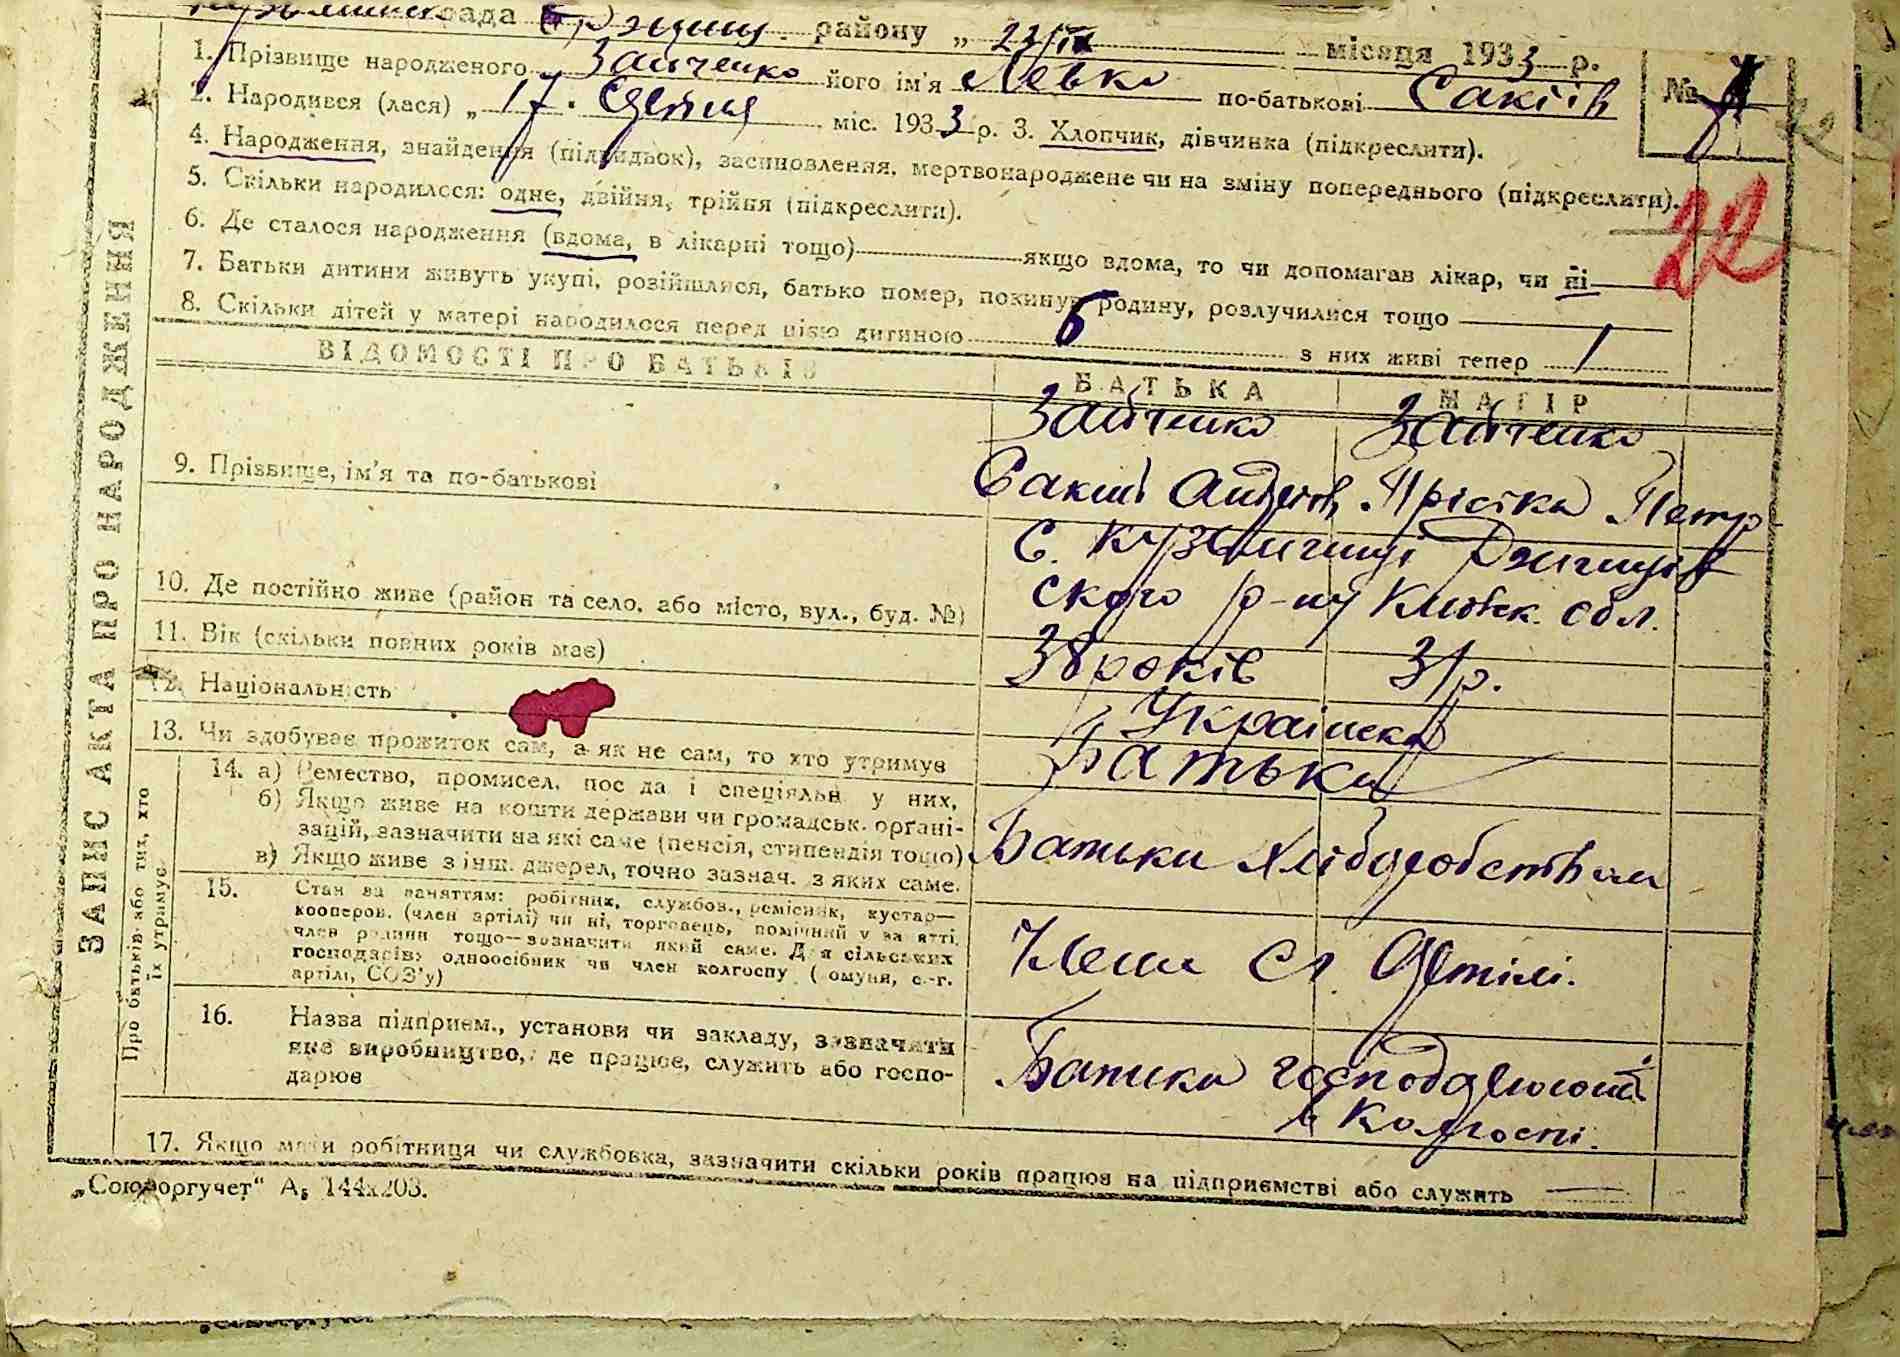 рада району „ 23/IX місяця 1933 р.
1. Прізвище народженого Зайченко його ім'я Левко по-батькові Сакіїв
№
2. Народився (лася) „ 17. міс. 1933 р. 3. Хлопчик, дівчинка (підкреслити).
4. Народження, знайдення (підкидьок), засиновлення, мертвонароджене чи на зміну попереднього (підкреслити).
22
5. Скільки народилося: одне, двійня, трійня (підкреслити).
6. Де сталося народження (вдома, в лікарні тощо) якщо вдома, то чи допомагав лікар, чи ні
7. Батьки дитини живуть укупі, розійшлися, батько помер, покинув родину, розлучилися тощо
8. Скільки дітей у матері народилося перед цією дитиною 6 з них живі тепер 1
ВІДОМОСТІ ПРО БАТЬКІВ БАТЬКА МАТІР
Зайченко Зайченко
9. Прізвище, ім'я та по-батькові
Прісіка Петр
с. Кузьминці
10. Де постійно живе (район та село, або місто, вул., буд. №)
ского р-ну Київск. обл.
11. Вік (скільки повних років має) 38 років 31 р.
12. Національність Українска
13. Чи здобуває прожиток сам, а як не сам, то хто утримує Батьки
14. а) Ремество, промисел, пос да і спеціяльн у них,
б) Якщо живе на кошти держави чи громадськ. орґані-
зацій, зазначити на які саме (пенсія, стипендія тощо)
в) Якщо живе з інш. джерел, точно зазнач. з яких саме.
Батьки хліборобством
15. Стан за заняттям: робітник, службов., ремісник, кустар—
кооперов. (член артілі) чи ні, торговець, помічний у за ятті
член родини тощо—зазначити який саме. Для сільських
господарів: одноосібник чи член колгоспу ( омуни, с.-г.
артілі, СОЗ'у)
Члени с г Артілі.
16. Назва підприєм., установи чи закладу, зазначити
яке виробництво, де працює, служить або госпо-
дарює
Батьки господарюють
в Колгоспі.
17. Якщо мати робітниця чи службовка, зазначити скільки років працює на підприємстві або служить
„Союзоргучет“ А₅ 144х203.
ЗАПИС АКТА ПРО НАРОДЖЕННЯ
Про батьків або тих, хто
їх утримує